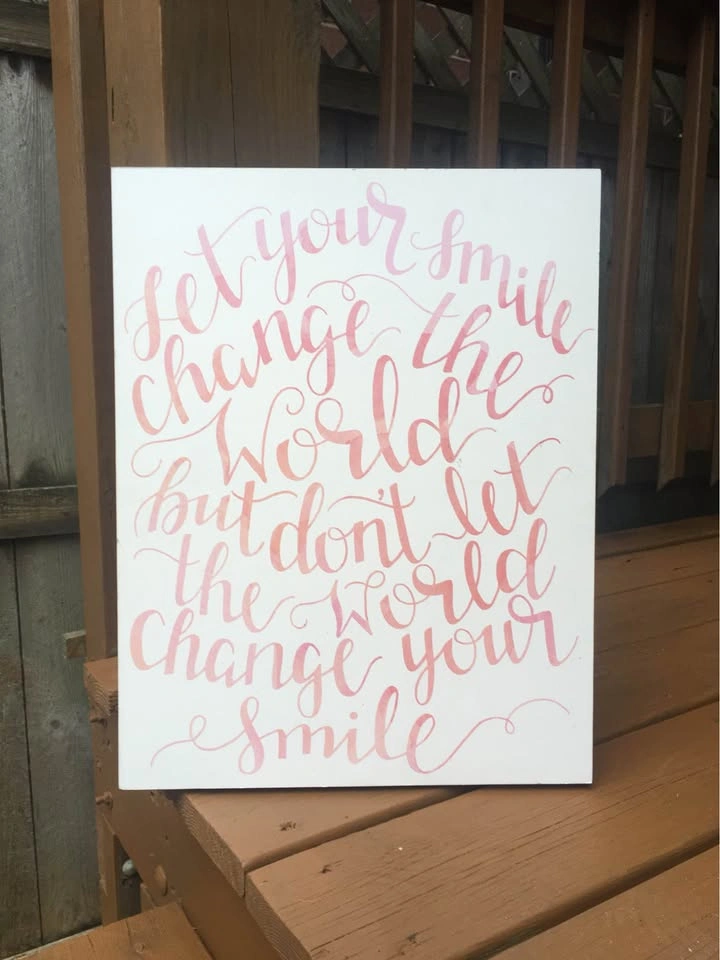 Let your smile
change the
World
but don't let
the World
Change your
smile